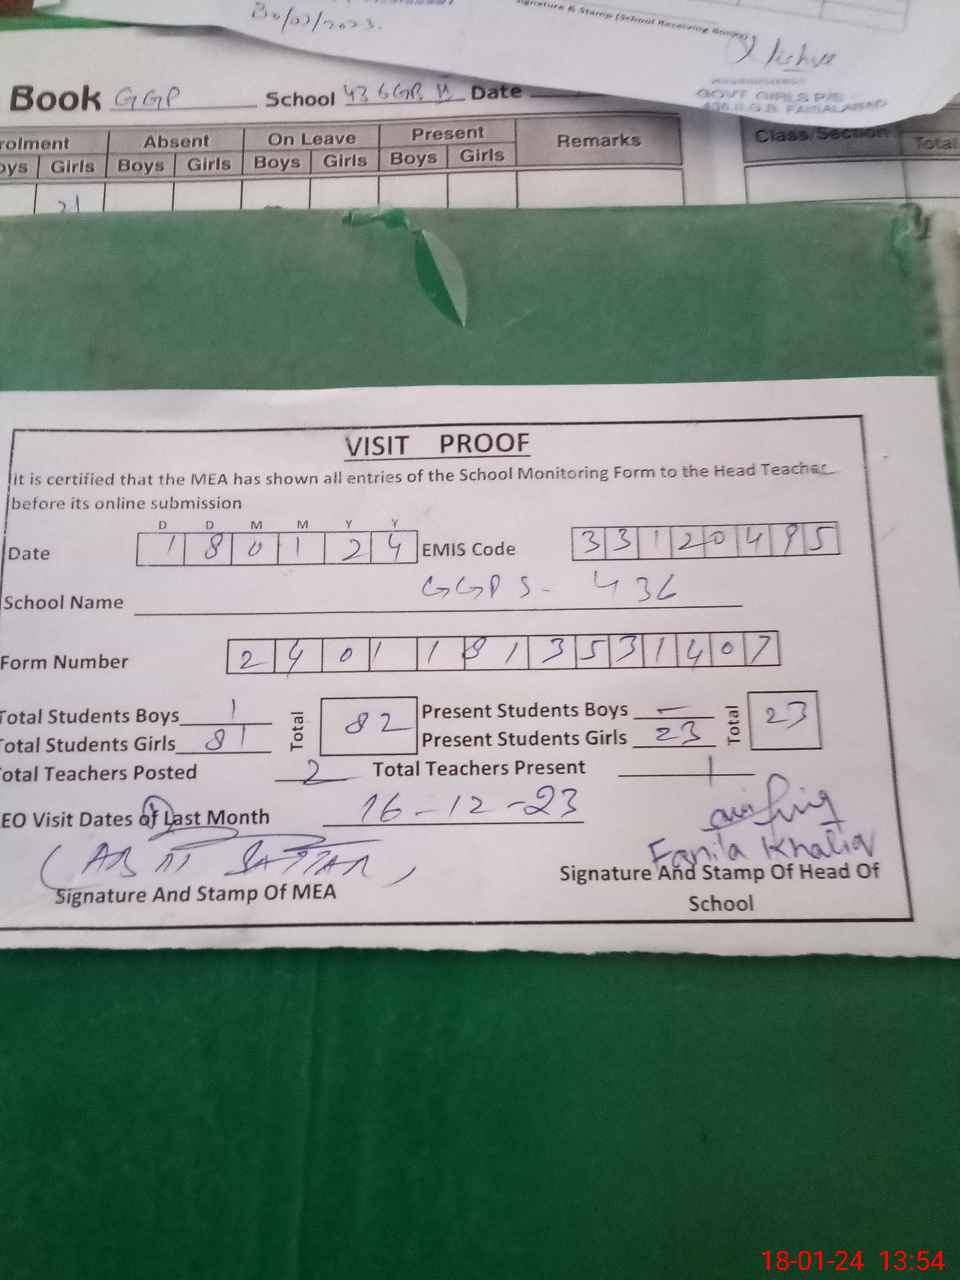 30/03/2023.
Signature & Stamp (School Receiving Books)
GOVT GIRLS P/S
436 G.B. FAISALABAD
Book GGP School 436GB Date
rolment Absent On Leave Present Remarks
oys Girls Boys Girls Boys Girls Boys Girls
21
Class/Section Total
VISIT PROOF
It is certified that the MEA has shown all entries of the School Monitoring Form to the Head Teacher
before its online submission
D D M M Y Y
Date 1 8 0 1 2 4 EMIS Code 3 3 1 2 0 4 9 5
School Name GGPS - 436
Form Number 2 4 0 1 1 8 1 3 5 3 1 4 0 7
Total Students Boys 1 Total 82 Present Students Boys — Total 23
Total Students Girls 81 Present Students Girls 23
Total Teachers Posted 2 Total Teachers Present 1
EO Visit Dates of Last Month 16-12-23
(ABDUL SATTAR)
Fanila Khaliq
Signature And Stamp Of MEA
Signature And Stamp Of Head Of
School
18-01-24 13:54